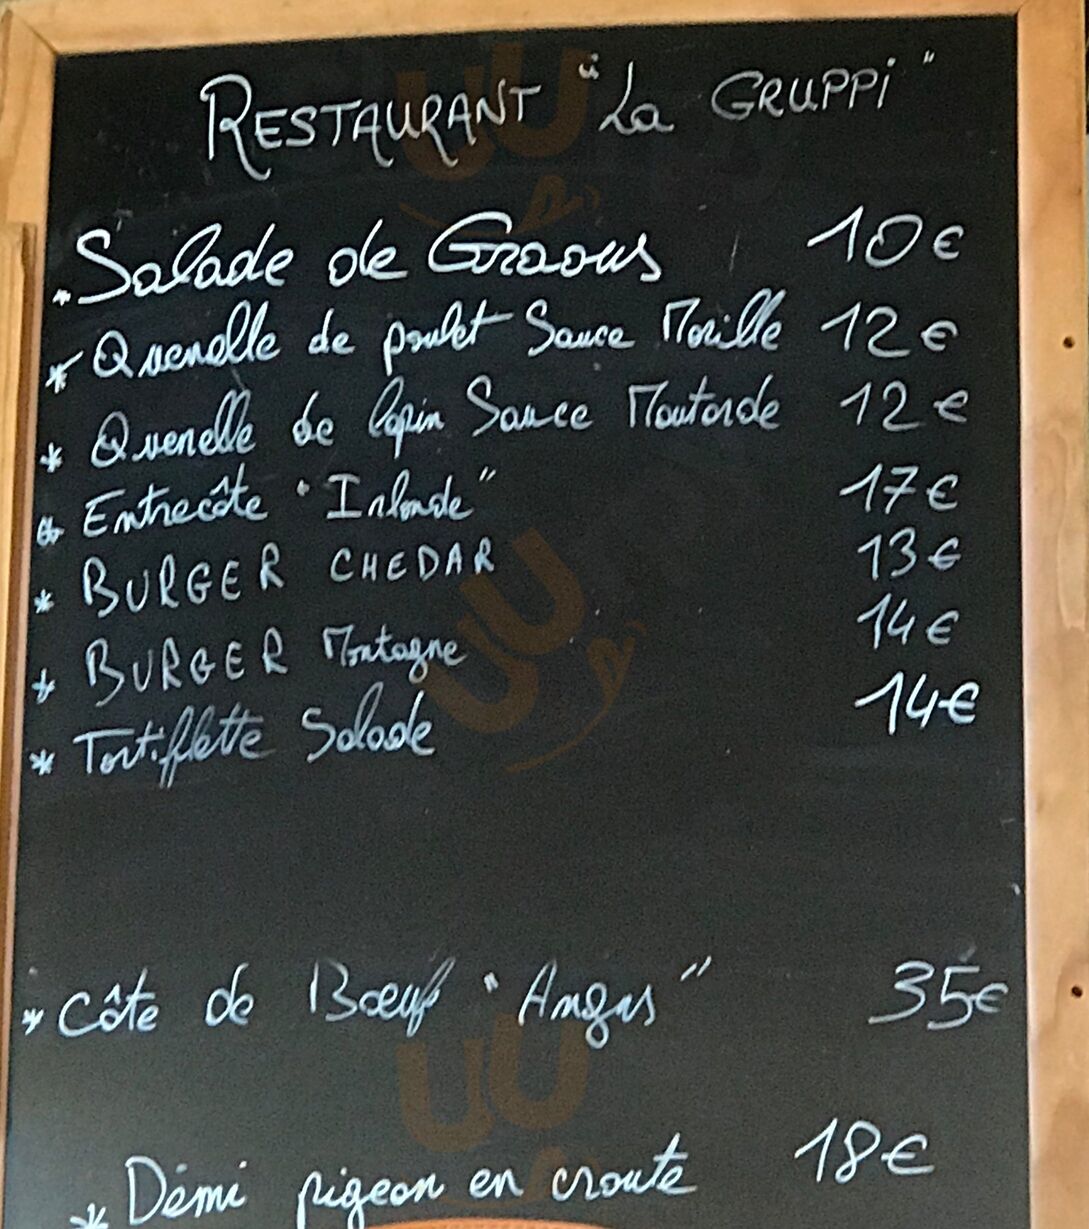 RESTAURANT "La GRUPPi"
* Salade de Graous 10€
* Quenelle de poulet Sauce Morille 12€
* Quenelle de lapin Sauce Moutarde 12€
* Entrecôte "Irlande" 17€
* BURGER CHEDAR 13€
* BURGER Montagne 14€
* Tartiflette Salade 14€
* Côte de Bœuf "Angus" 35€
* Démi pigeon en croute 18€